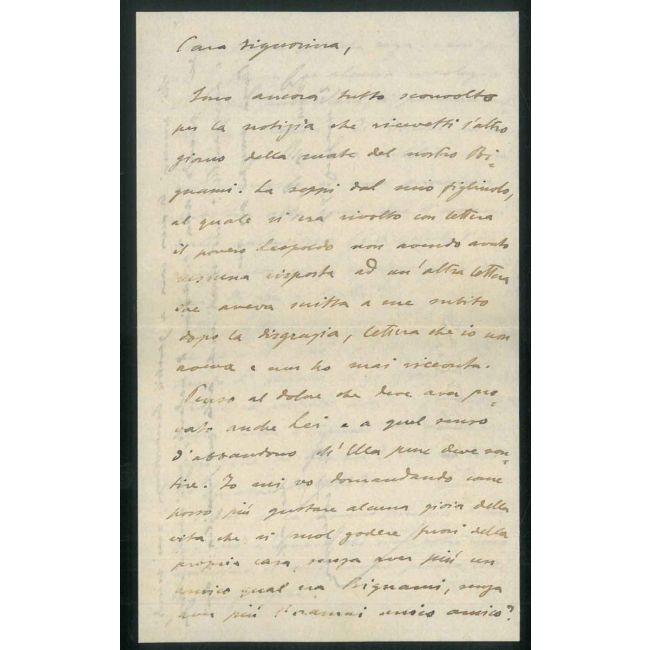 Cara Signorina,
Sono ancora tutto sconvolto
per la notizia che ricevetti l'altro
giorno della morte del nostro Bi-
gnami. La seppi dal mio figliuolo,
al quale si era rivolto con lettera
il povero Leopoldo non avendo avuto
nessuna risposta ad un'altra lettera
che aveva scritta a me subito
dopo la disgrazia, lettera che io non
aveva e non ho mai ricevuta.
Penso al dolore che deve aver pro-
vato anche Lei e a quel senso
d'abbandono ch'Ella pure deve sen-
tire. Io mi vo domandando come
posso più gustare alcuna gioia della
vita che si suol godere fuori della
propria casa, senza aver più un
amico qual era Bignami, senza
aver più l'oramai unico amico?